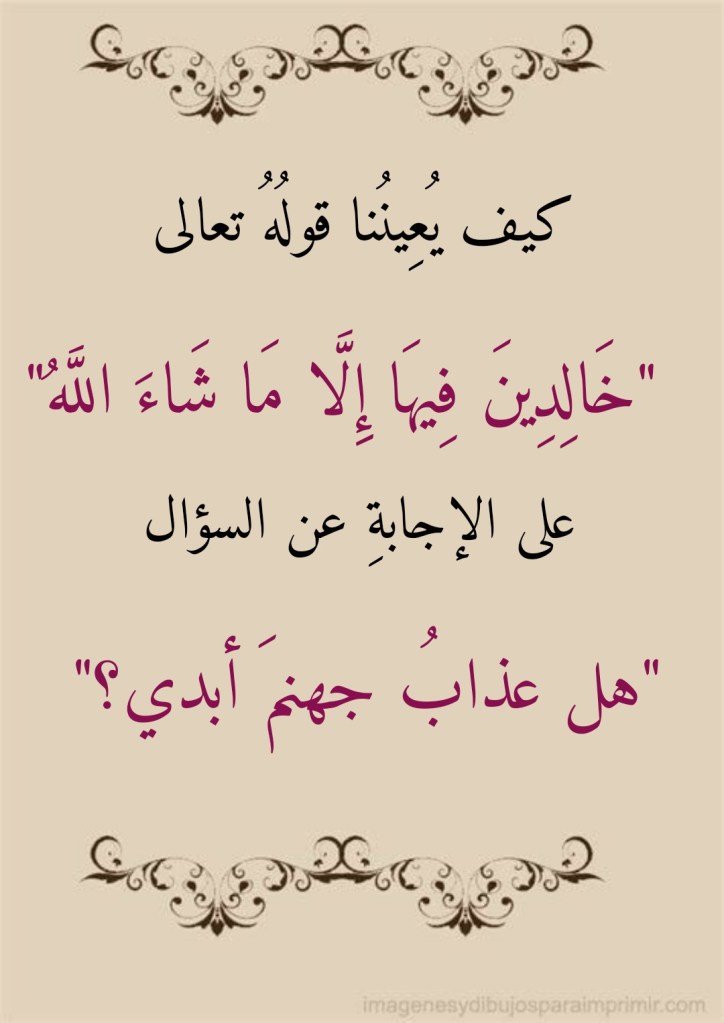 كيف يُعِينُنا قولُهُ تعالى
"خَالِدِينَ فِيهَا إِلَّا مَا شَاءَ اللَّهُ"
على الإجابةِ عن السؤال
"هل عذابُ جهنمَ أبدي؟"
imagenesydibujosparaimprimir.com